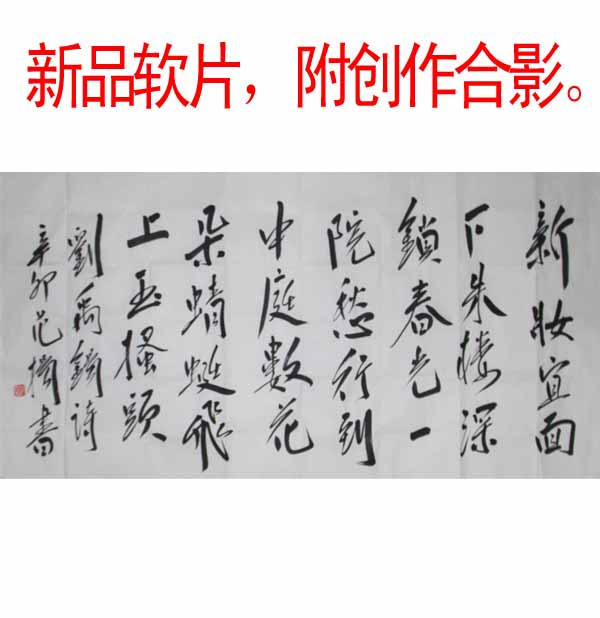 新品软片，附创作合影。
新妝宜面
下朱楼深
鎖春光一
院愁行到
中庭數花
朵蜻蜓飛
上玉搔頭
劉禹錫詩
辛卯范書